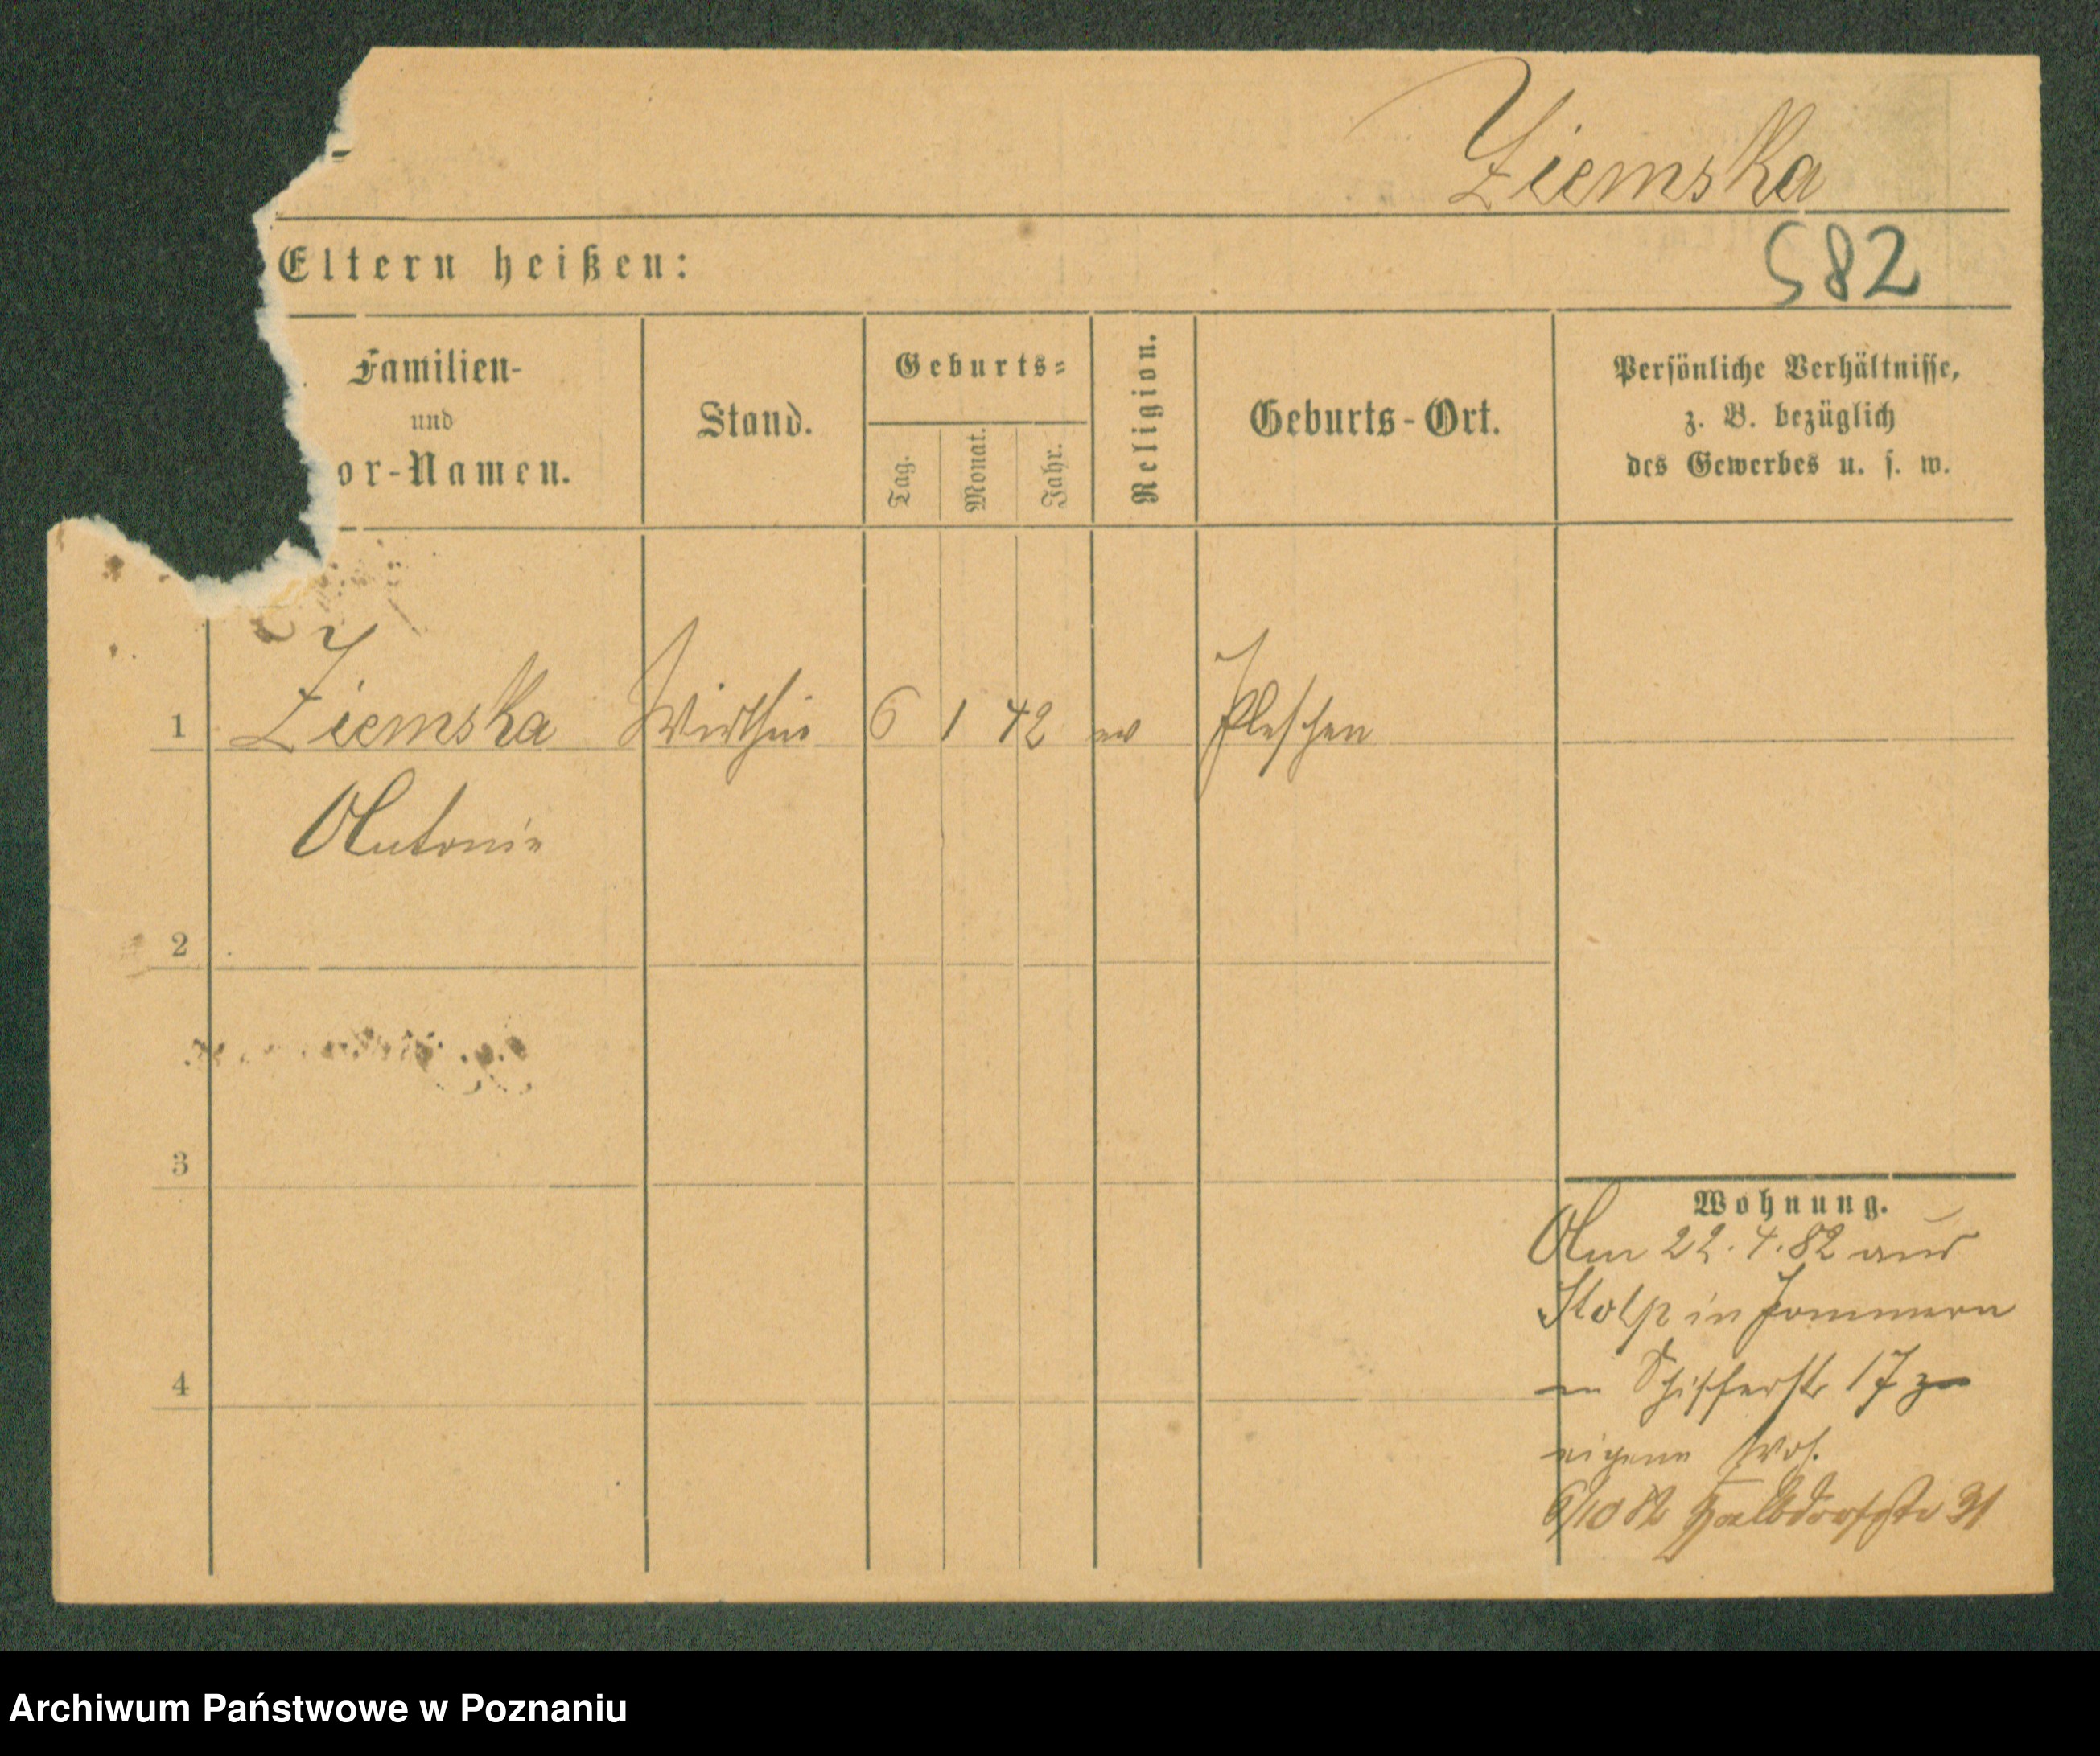 Ziemska
582
Eltern heißen:
Familien-
und
or-Namen.
Stand.
Geburts-
Tag.
Monat.
Jahr.
Religion.
Geburts-Ort.
Persönliche Verhältnisse,
z. B. bezüglich
des Gewerbes u. s. w.
1 Ziemska Wirthin 6 1 42 ev Pleschen
Antonie
2
3
4
Wohnung.
Am 22.4.82 aus
Stolp in Pommern
n Schifferstr 17 zu
eigene Woh.
6/10 82 Halbdorfstr 31
Archiwum Państwowe w Poznaniu